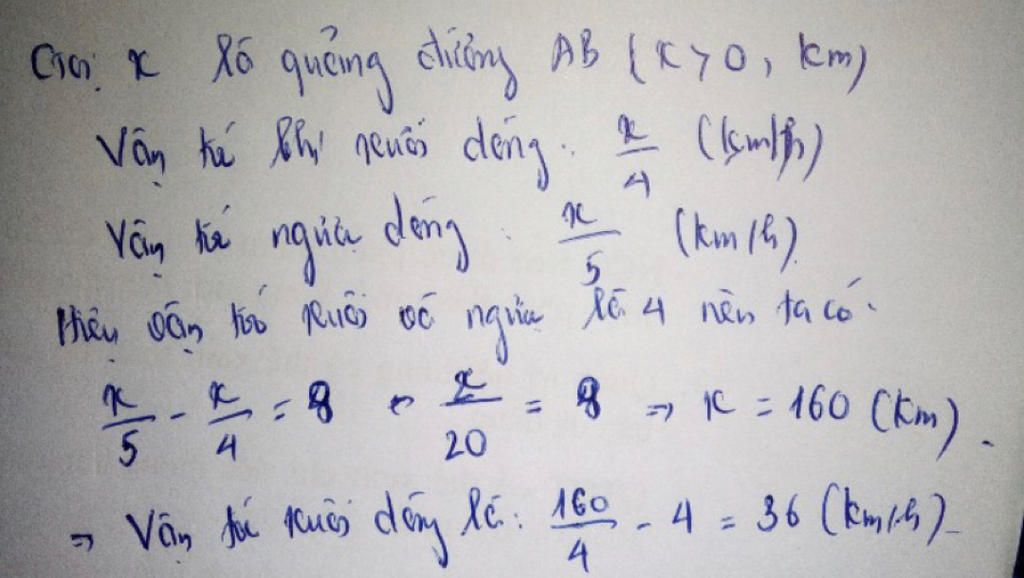 Gọi x là quãng đường AB (x > 0, km)
Vận tốc khi xuôi dòng: x/4 (km/h)
Vận tốc ngược dòng: x/5 (km/h)
Hiệu vận tốc xuôi và ngược là 4 nên ta có.
x/5 - x/4 = 8 <- x/20 = 8 => x = 160 (km).
=> Vận tốc xuôi dòng là: 160/4 - 4 = 36 (km/h)